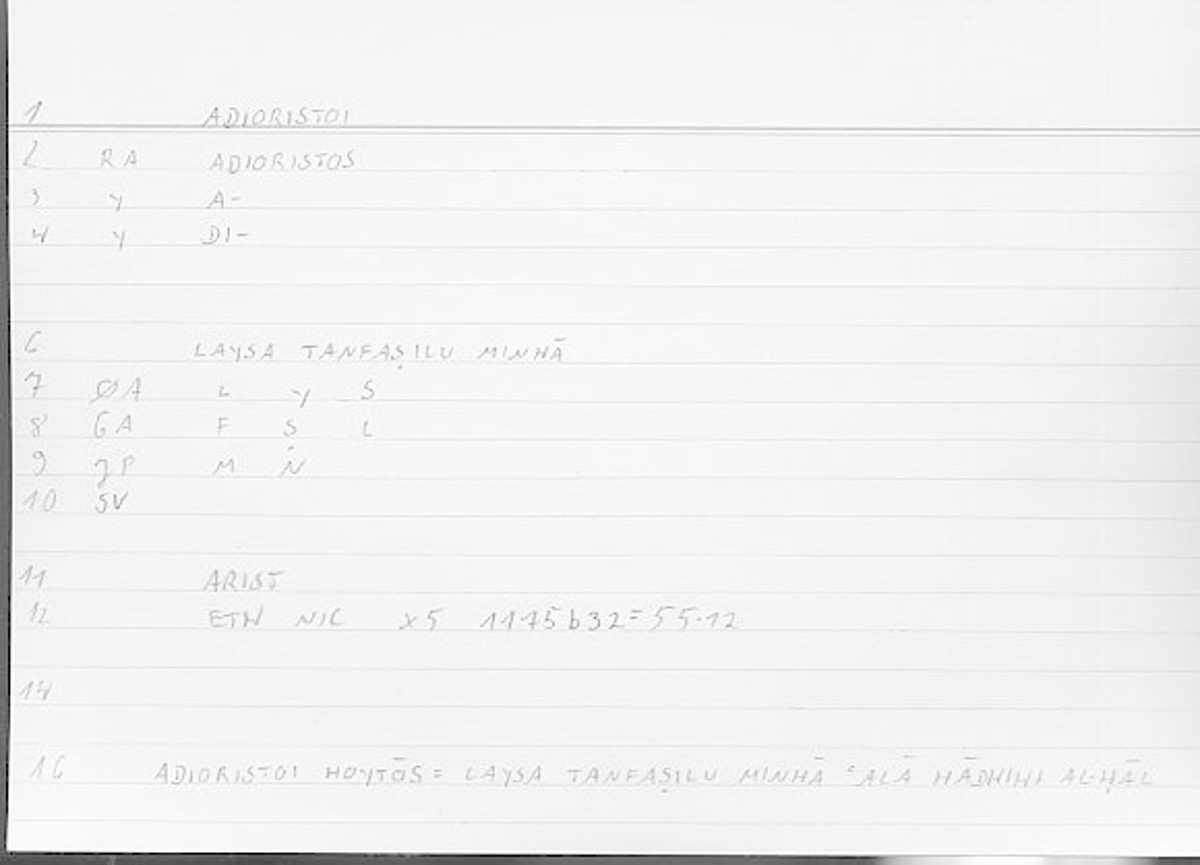 1 ADIORISTOI
2 RA ADIORISTOS
3 Y A-
4 Y DI-
6 LAYSA TANFAṢILU MINHĀ
7 ØA L Y S
8 GA F Ṣ L
9 ȝP M N
10 SV
11 ARIST
12 ETH NIC x5 1175b32=55.12
14
16 ADIORISTOI HOYTŌS = LAYSA TANFAṢILU MINHĀ ʿALĀ HĀDHIHI AL-ḤĀL